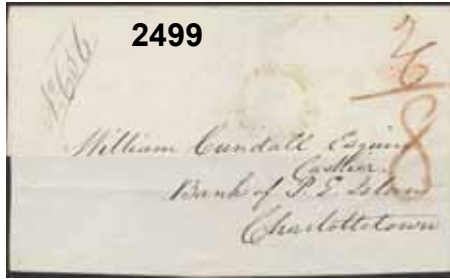 2499
2/6
8
William Cundall Esquire
Cashier
Bank of P. E. Island
Charlottetown